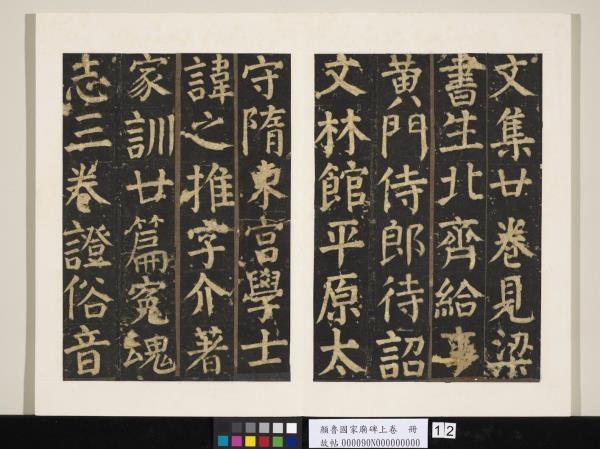 文集廿卷見梁
書生北齊給事
黄門侍郎待詔
文林館平原太
守隋東宮學士
諱之推字介著
家訓廿篇冤魂
志三卷證俗音
顏魯國家廟碑上卷 冊
故帖 000090N000000000
12